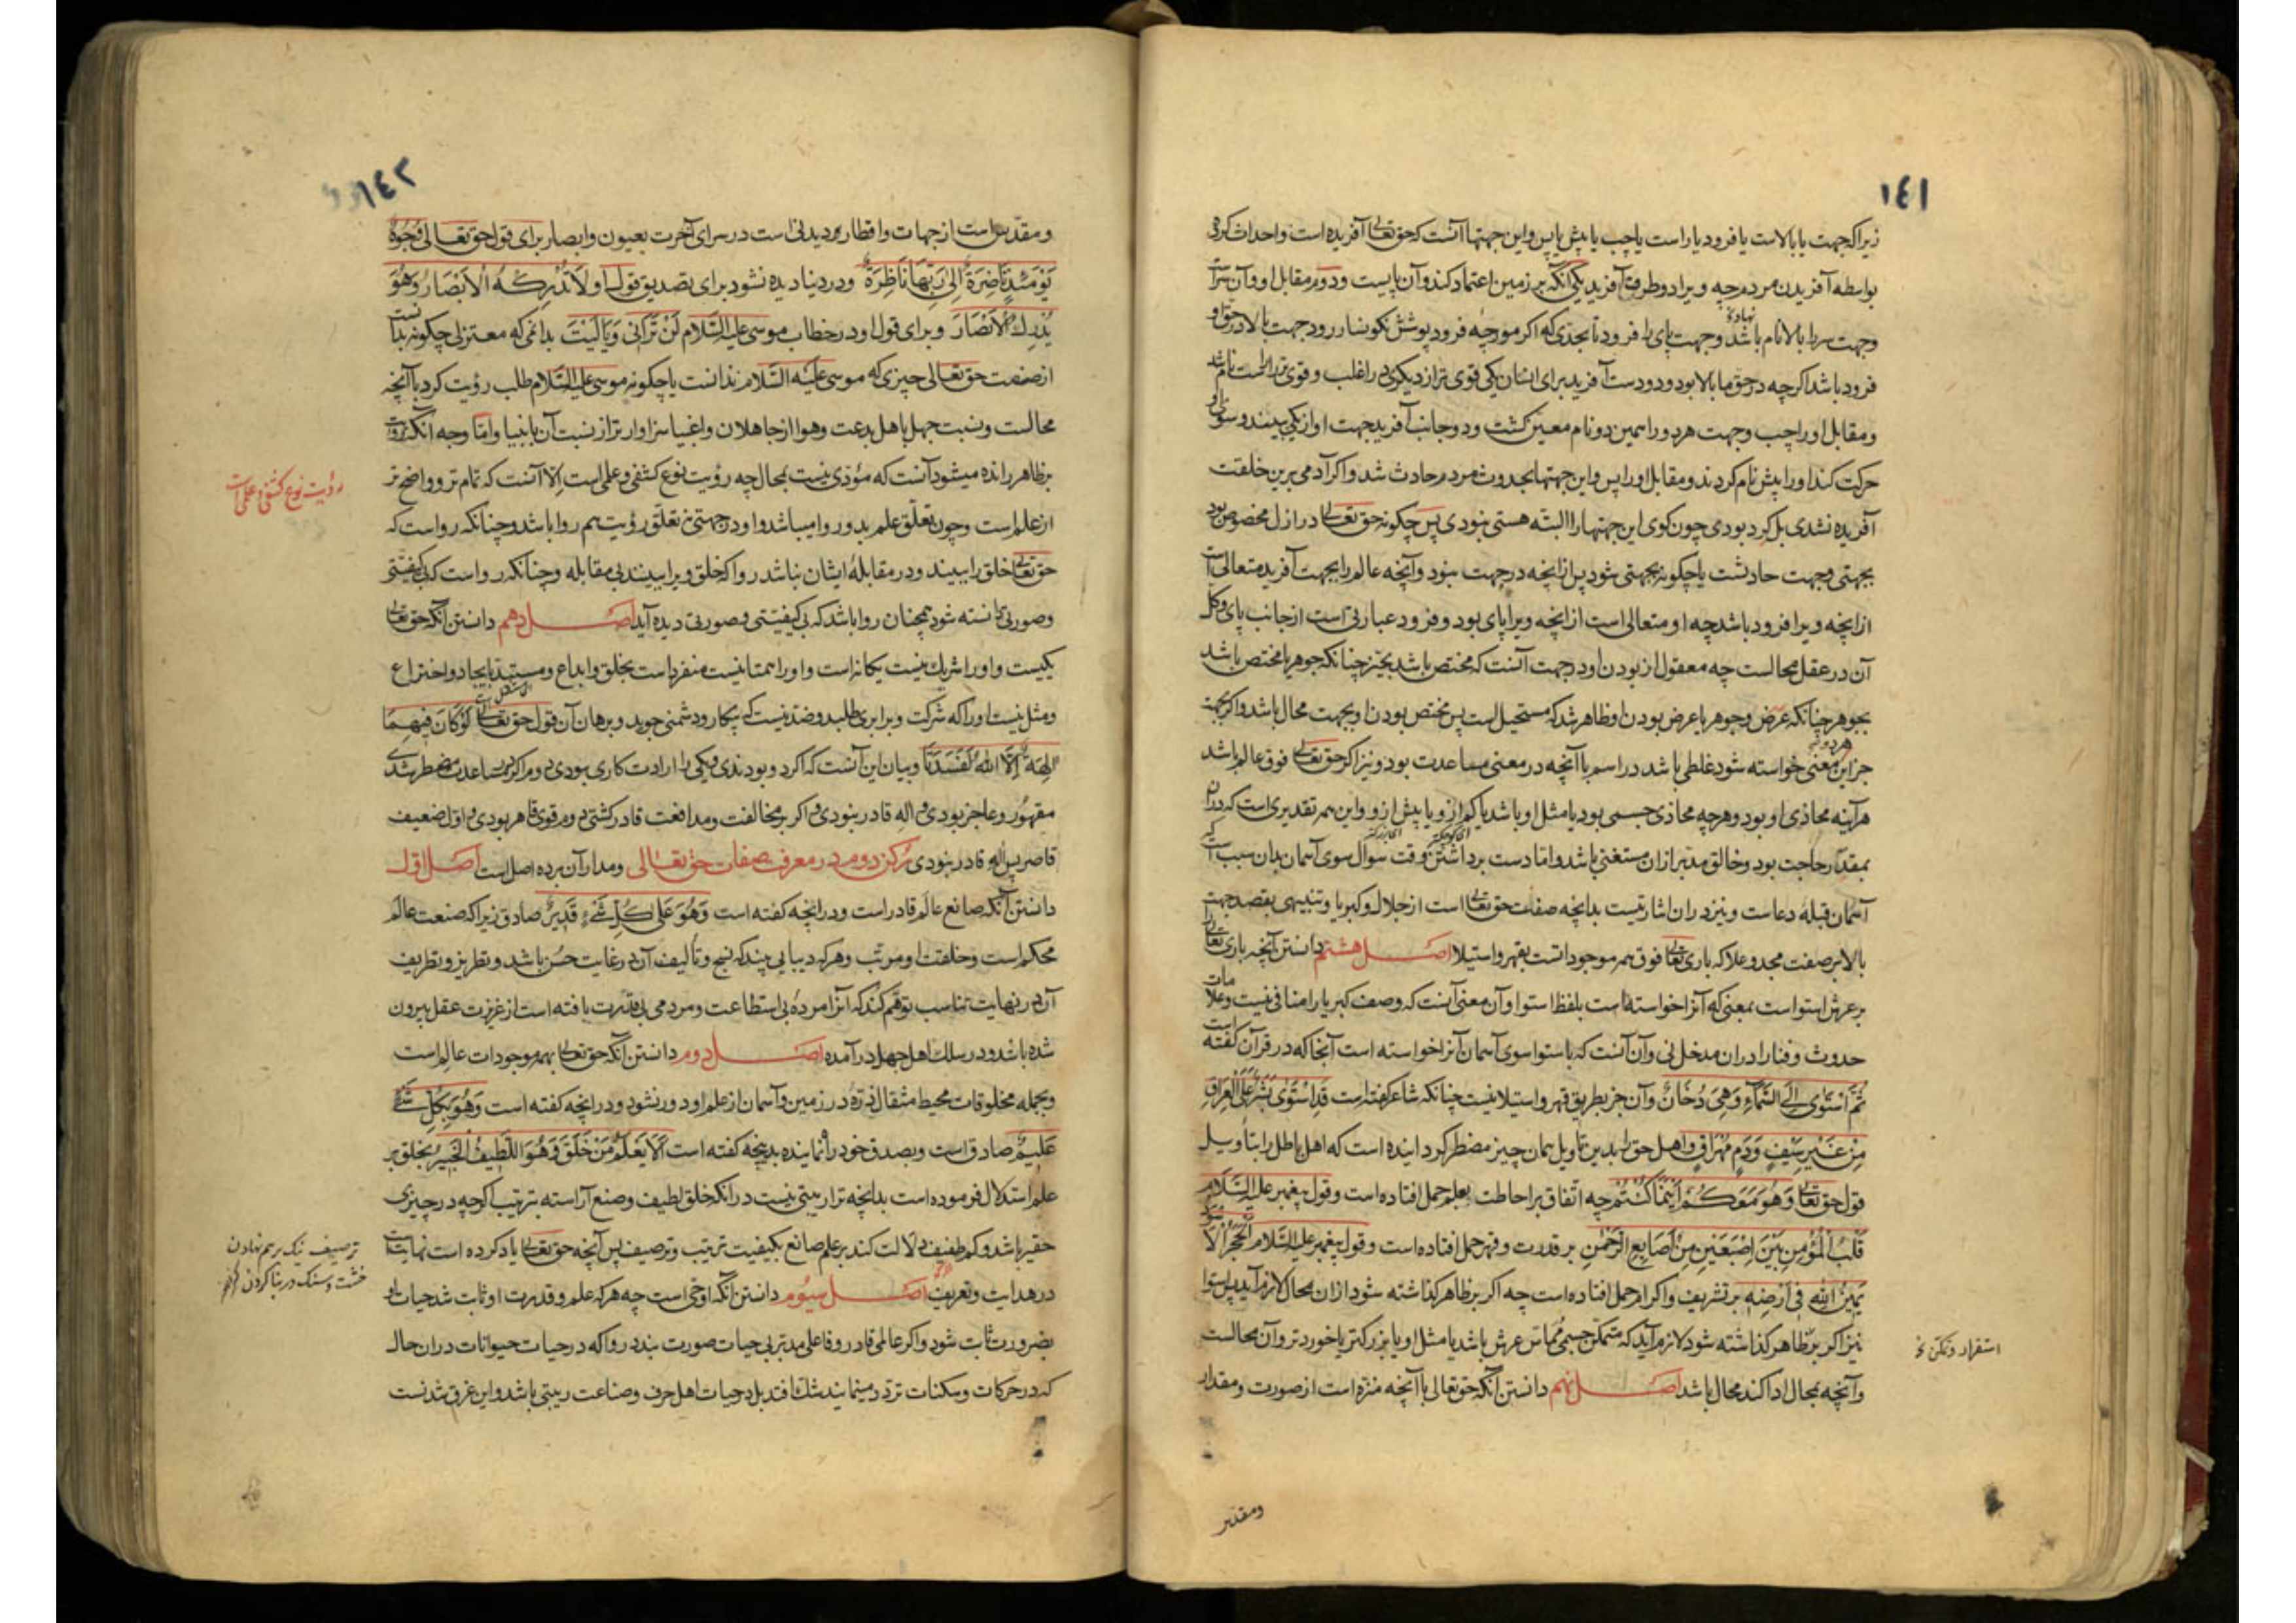 ١٤١
زیراکه جهت یا بالاست یا فرود یا راست یا چپ یا پیش یا پس و این جهتها آنست که حق تعالی آفریده است و احداث کرده
بواسطه آفریدن مردم چه ویرا دو طرف آفرید یکی آنکه بر زمین اعتماد کند و آن پایست و دوم مقابل او و آن سراست
وجهت سر را بالا نام باشد وجهت پای را فرود تا بحدی که اکر مورچه فرود پوشش نکونسار رود جهت بالا در حق او
نهاده
فرود باشد اکرچه در حق ما بالا بود و دو دست آفرید برای انسان یکی قوی تر از دیکری در اغلب و قوی تر را راست نام شد
و مقابل او را چپ وجهت هر دو را همین دو نام معین کشت و دو جانب آفرید جهت او از یکی بیند و سوی او
حرکت کند او را پیش نام کردند و مقابل او را پس و این جهتها بحدوث مردم حادث شد و اکر آدمی برین خلقت
آفریده نشدی بل کرد بودی چون کوی این جهتها را البته هستی نبودی پس چکونه حق تعالی در ازل مخصوص بود
بجهتی وجهت حادثست یا چکونه بجهتی شود پس از آنچه در جهت نبود و آنچه عالم را بجهت آفرید متعالی است
از آنچه ویرا فرود باشد چه او متعالی است از آنچه ویرا پای بود و فرود عبارتی است از جانب پای و کل
آن در عقل محالست چه معقول از بودن او در جهت آنست که مختص باشد بحیز چنانکه جوهر یا مختص باشد
بجوهر چنانکه عرض وجوهر یا عرض بودن او ظاهر شد که مستحیل است پس مختص بودن او بجهت محال باشد و اکر بجهت
جز این معنی خواسته شود غلطی باشد در اسم با آنچه در معنی مساعدت بود و نیز اکر حق تعالی فوق عالم باشد
هرآینه محاذی او بود و هرچه محاذی جسمی بود یا مثل او باشد یا کم ازو یا بیش ازو و این همه تقدیری است که در آن
بمقدّر حاجت بود و خالق مدبر ازان مستغنی باشد و اما دست برداشتن وقت سؤال سوی آسمان بدان سبب است که
آسمان قبلهٔ دعاست و نیز دران اشارتیست بدانچه صفت حق تعالی است از جلال و کبریا و تنبیهی بقصد جهت
بالا بر صفت مجد و علا که باری تعالی فوق همه موجوداتست بقهر و استیلا اصل هشتم دانستن آنچه باری تعالی
بر عرش استواست بمعنی که آنرا خواسته است بلفظ استوا و آن معنی آنست که وصف کبریا را منافی نیست و علامات
حدوث و فنا را دران مدخل نی و آن آنست که باستوا سوی آسمان آنرا خواسته است آنجا که در قرآن گفته است
ثُمَّ اسْتَوٰی اِلَی السَّمَآءِ وَهِیَ دُخَانٌ وآن جز بطریق قهر و استیلا نیست چنانکه شاعر گفته است قَدِ اسْتَوٰی بِشْرٌ عَلَی الْعِرَاقِ
مِنْ غَیْرِ سَیْفٍ وَدَمٍ مُهْرَاقٍ و اهل حق را بدین تأویل همان چیز مضطر کردانیده است که اهل باطل را بتأویل
قول حق تعالی وَهُوَ مَعَکُمْ اَیْنَمَا کُنْتُمْ چه اتّفاق بر احاطت بعلم حمل افتاده است وقول پیغمبر علیه السَّلام
قَلْبُ الْمُؤْمِنِ بَیْنَ اِصْبَعَیْنِ مِنْ اَصَابِعِ الرَّحْمٰنِ بر قدرت و قهر حمل افتاده است و قول پیغمبر علیه السلام اَلْحَجَرُ الْاَسْوَدُ
یَمِیْنُ اللهِ فِی اَرْضِهِ بر تشریف و اکرام حمل افتاده است چه اکر بر ظاهر گذاشته شود ازان محال لازم آید پس استوا
نیز اکر بر ظاهر گذاشته شود لازم آید که متمکن جسمی مُماس عرش باشد یا مثل او یا بزرکتر یا خوردتر و آن محالست
استقرار و تمکن
و آنچه بمحال ادا کند محال باشد اصل نهم دانستن آنکه حق تعالی با آنچه منزه است از صورت و مقدار
ومقدس
١٤٢
و مقدّس است از جهات و اقطار دیدنی است در سرای آخرت بعیون و ابصار برای قول حق تعالی وُجُوْهٌ
یَوْمَئِذٍ نَاضِرَةٌ اِلٰی رَبِّهَا نَاظِرَةٌ و در دنیا دیده نشود برای تصدیق قول او لَا تُدْرِکُهُ الْاَبْصَارُ وَهُوَ
یُدْرِكُ الْاَبْصَارَ و برای قول او در خطاب موسی علیه السَّلام لَنْ تَرَانِی وَیَالَیْتَ بدانمی که معتزلی چکونه بدانست
از صفت حق تعالی چیزی که موسی علیه السَّلام ندانست یا چکونه موسی علیه السَّلام طلب رؤیت کرد با آنچه
محالست و نسبت جهل باهل بدعت و هوا از جاهلان و اغبیا سزاوارتر از نسبت آن بانبیا و امّا وجه آنکه رؤیت
بر ظاهر رانده میشود آنست که مؤدی نیست بمحال چه رؤیت نوع کشفی و علمی است اِلّا آنست که تمام تر و واضح تر
رؤیت نوع کشفی و علمی است
از علم است و چون تعلّق علم بدو روا میباشد و او در جهتی نی تعلّق رؤیت هم روا باشد و چنانکه رواست که
حق تعالی خلق را ببیند و در مقابلهٔ ایشان نباشد روا که خلق ویرا ببینند بی مقابله و چنانکه رواست که بی کیفیتی
و صورتی دانسته شود همچنان روا باشد که بی کیفیتی و صورتی دیده آید اصل دهم دانستن آنکه حق تعالی
یکیست و او را شریك نیست یکانه است و او را همتا نیست منفرد است بخلق و ابداع و مستبد بایجاد و اختراع
و مثل نیست او را که شرکت و برابری طلبد و ضد نیست که پیکار و دشمنی جوید و برهان آن قول حق تعالی لَوْکَانَ فِیْهِمَا
اٰلِهَةٌ اِلَّا اللهُ لَفَسَدَتَا و بیان این آنست که اکر دو بودندی و یکی را ارادت کاری بودی دوم اکر بمساعدت مضطر شدی
مقهور و عاجز بودی و اله قادر نبودی و اکر بر مخالفت و مدافعت قادر کشتی دوم قوی قاهر بودی و اوّل ضعیف
قاصر پس اله قادر نبودی رکن دوم در معرفت صفات حق تعالی و مدار آن بر ده اصل است اصل اوّل
دانستن آنکه صانع عالم قادر است و در آنچه کفته است وَهُوَ عَلٰی کُلِّ شَیْءٍ قَدِیْرٌ صادق زیراکه صنعت عالم
محکم است و خلقت او مرتب و هرکه دیبایی بیند که نسج و تألیف آن در غایت حسُن باشد و تطریز و تطریف
آن در نهایت تناسب توهّم کند که آنرا مردهٔ بی استطاعت و مردمی بی قدرت بافته است از غریزت عقل بیرون
شده باشد و در سلك اهل جهل درآمده اصل دوم دانستن آنکه حق تعالی بهمه موجودات عالم است
و بجمله مخلوقات محیط مثقال ذرّهٔ در زمین و آسمان از علم او دور نشود و در آنچه کفته است وَهُوَ بِکُلِّ شَیْءٍ
عَلِیْمٌ صادق است و بصدق خود راه نماینده بدانچه کفته است اَلَا یَعْلَمُ مَنْ خَلَقَ وَهُوَ اللَّطِیْفُ الْخَبِیْرُ بخلق بر
علم استدلال فرموده است بدانچه ترا ریبتی نیست در آنکه خلق لطیف و صنع آراسته بترتیب اکرچه در چیزی
حقیر باشد و کم طفیف دلالت کند بر علم صانع بکیفیت ترتیب و ترصیف پس آنچه حق تعالی یاد کرده است نهایت است
ترصیف نیک برهم نهادن
خشت و سنک در بنا کردن
در هدایت و تعریف اصل سیُوم دانستن آنکه او حی است چه هرکه علم و قدرت او ثابت شد حیات او
بضرورت ثابت شود و اکر عالمی قادر و فاعلی مدبّر بی حیات صورت بندد روا که در حیات حیوانات در ان حال
که در حرکات و سکنات تردد مینمایند شك افتد بل در حیات اهل حرف و صناعت ریبتی باشد و این غرق شدنست